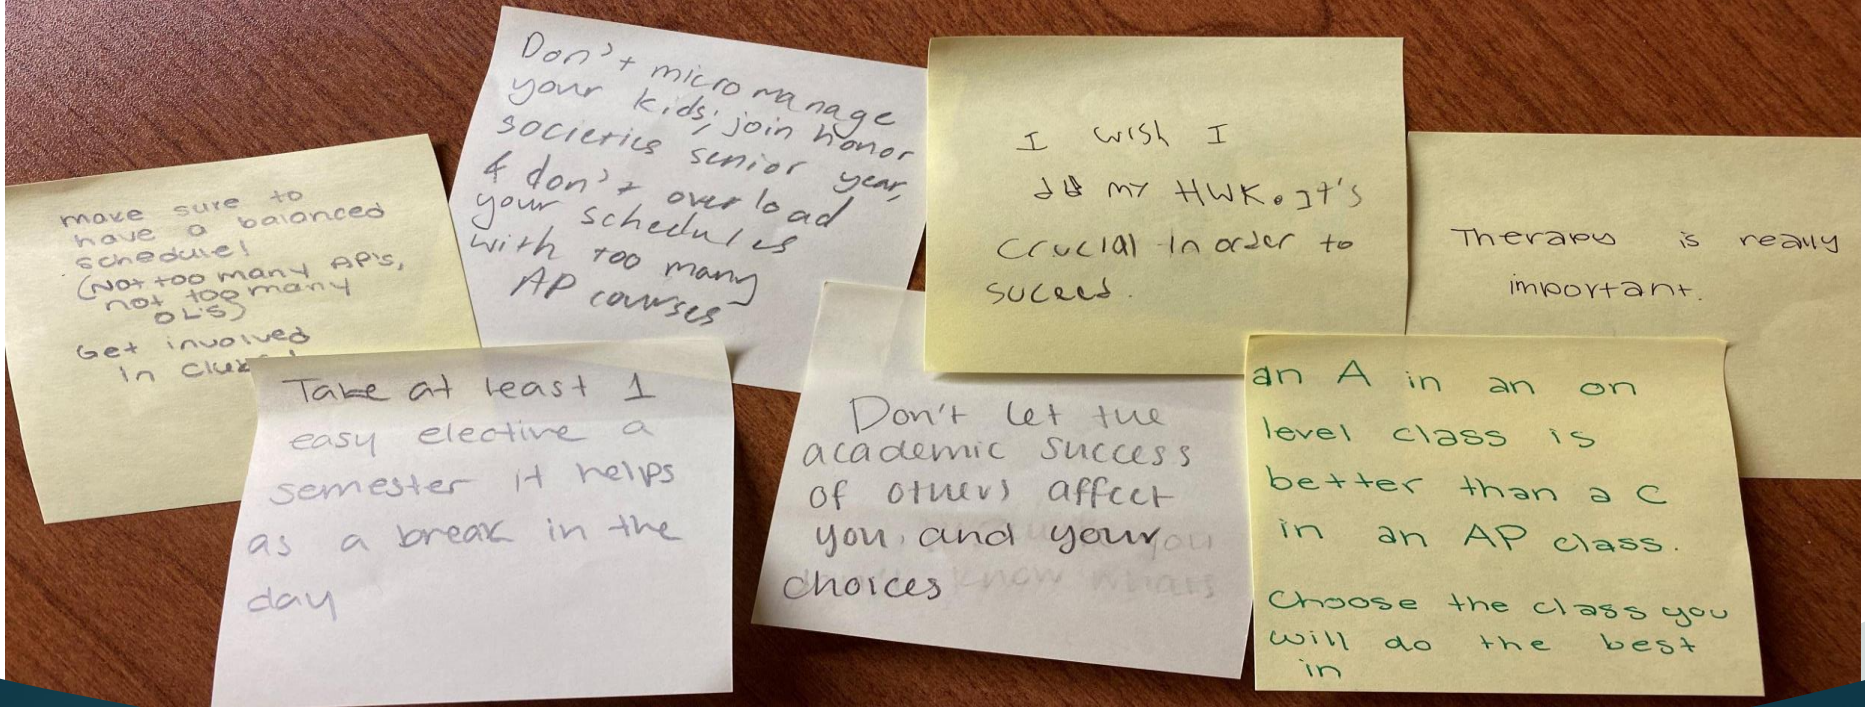 make sure to
have a balanced
schedule!
(Not too many AP's,
not too many
OL's)
Get involved
in
Don't micromanage
your kids; join honor
societies senior year,
& don't overload
your schedules
with too many
AP courses
I wish I
did my HWK. It's
crucial in order to
suceed.
Therapy is really
important.
Take at least 1
easy elective a
semester it helps
as a break in the
day
Don't let the
academic success
of others affect
you, and your
choices
an A in an on
level class is
better than a C
in an AP class.
Choose the class you
will do the best
in